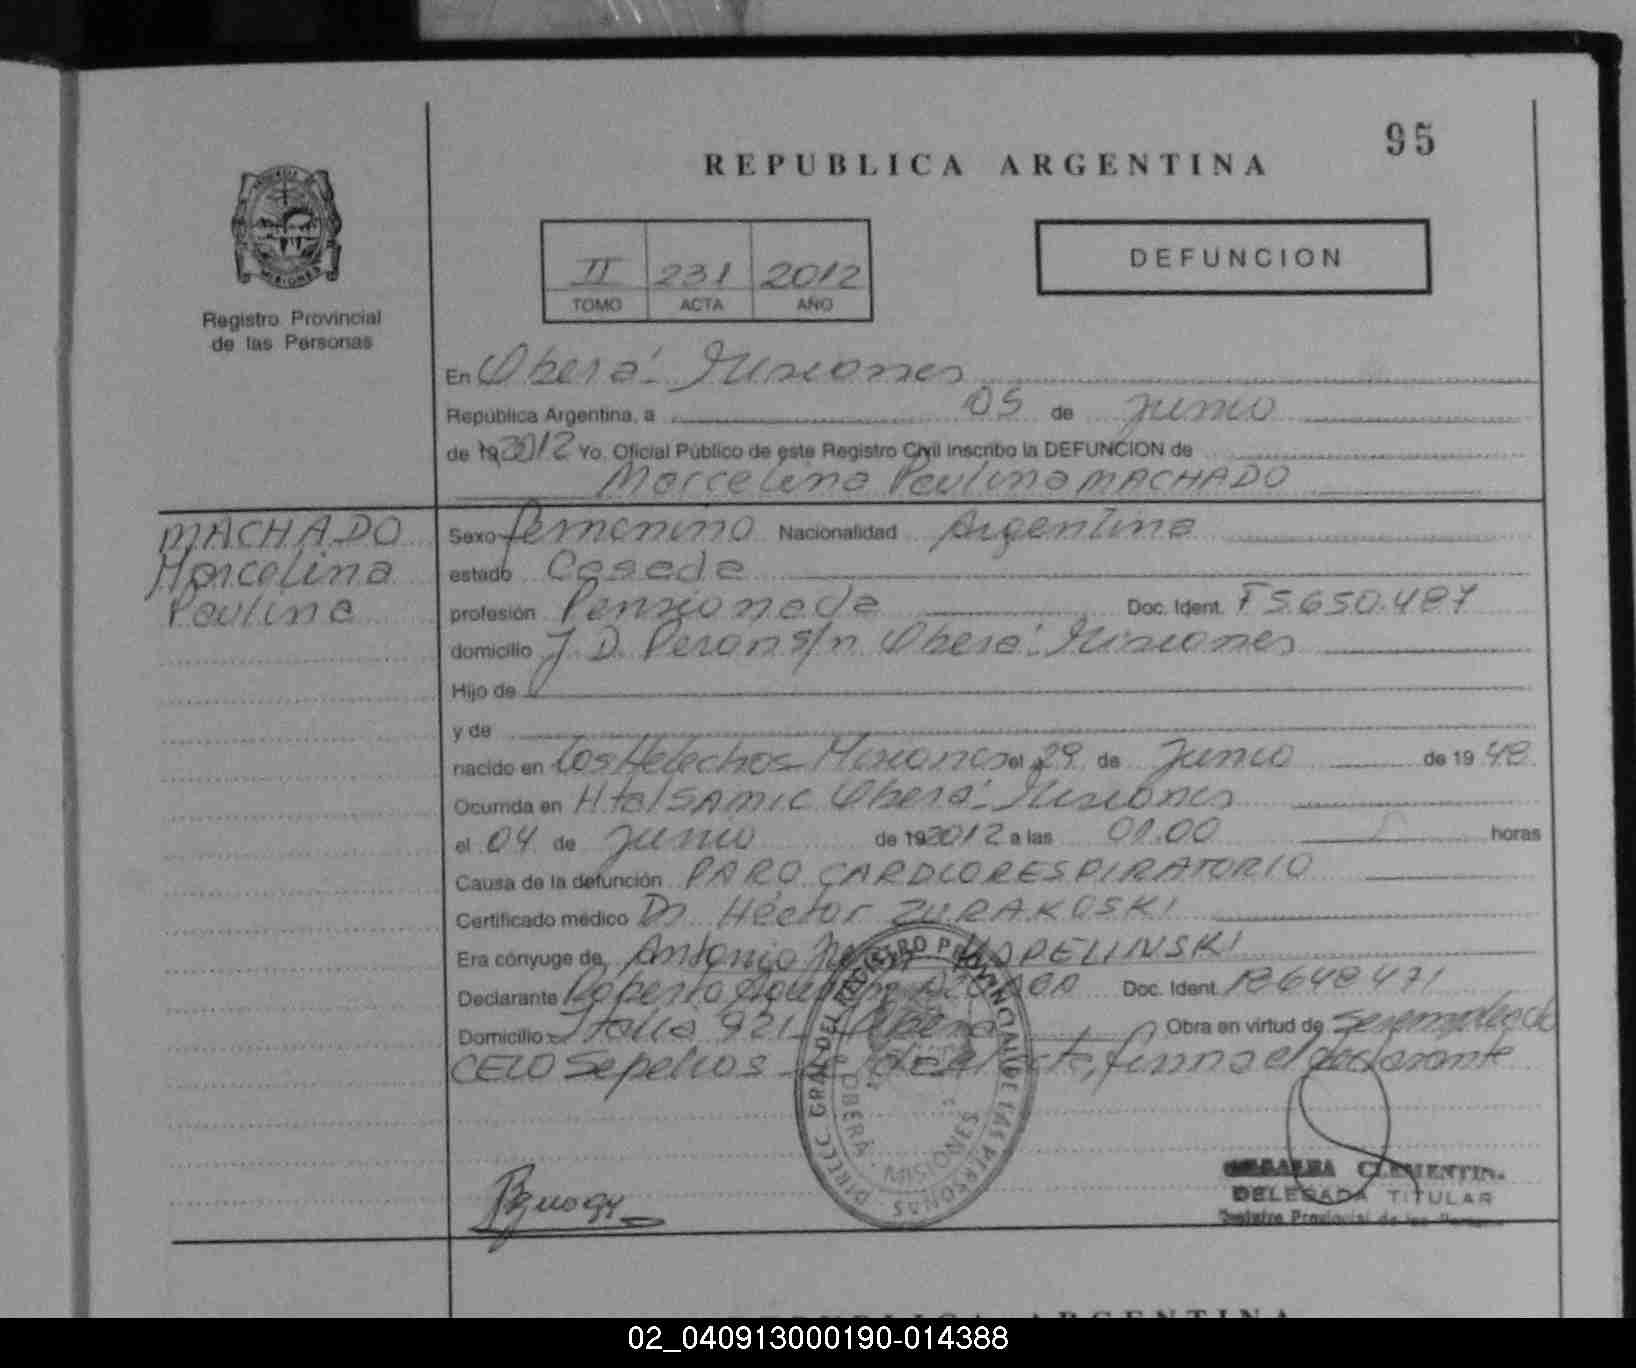 95
REPUBLICA ARGENTINA
MISIONES
Registro Provincial
de las Personas
II 231 2012
TOMO ACTA AÑO
DEFUNCION
En Oberá - Misiones
República Argentina, a 05 de junio
de 19 2012 Yo, Oficial Público de este Registro Civil inscribo la DEFUNCION de
Marcelina Paulina MACHADO
MACHADO
Marcelina
Paulina
Sexo femenino Nacionalidad Argentina
estado Casada
profesión Pensionada Doc. Ident. F 5.650.487
domicilio J. D. Peron s/n Oberá - Misiones
Hijo de
y de
nacido en Los Helechos - Misiones el 29 de Junio de 19 48
Ocurrida en H tal SAMIC Oberá - Misiones
el 04 de junio de 19 2012 a las 01.00 horas
Causa de la defunción PARO CARDIORESPIRATORIO
Certificado médico Dr. Héctor ZURAKOSKI
Era cónyuge de Antonio KOPELINSKI
Declarante Roberto Doc. Ident. 18648471
Domicilio Italia 921 - Oberá Obra en virtud de ser empleado
CELO Sepelios - acta, firma el declarante
DIRECC. GRAL. DEL REGISTRO PROVINCIAL DE LAS PERSONAS
OBERÁ - MISIONES
CLEMENTIN
DELEGADA TITULAR
Registro Provincial de las Personas
REPUBLICA ARGENTINA
02_040913000190-014388